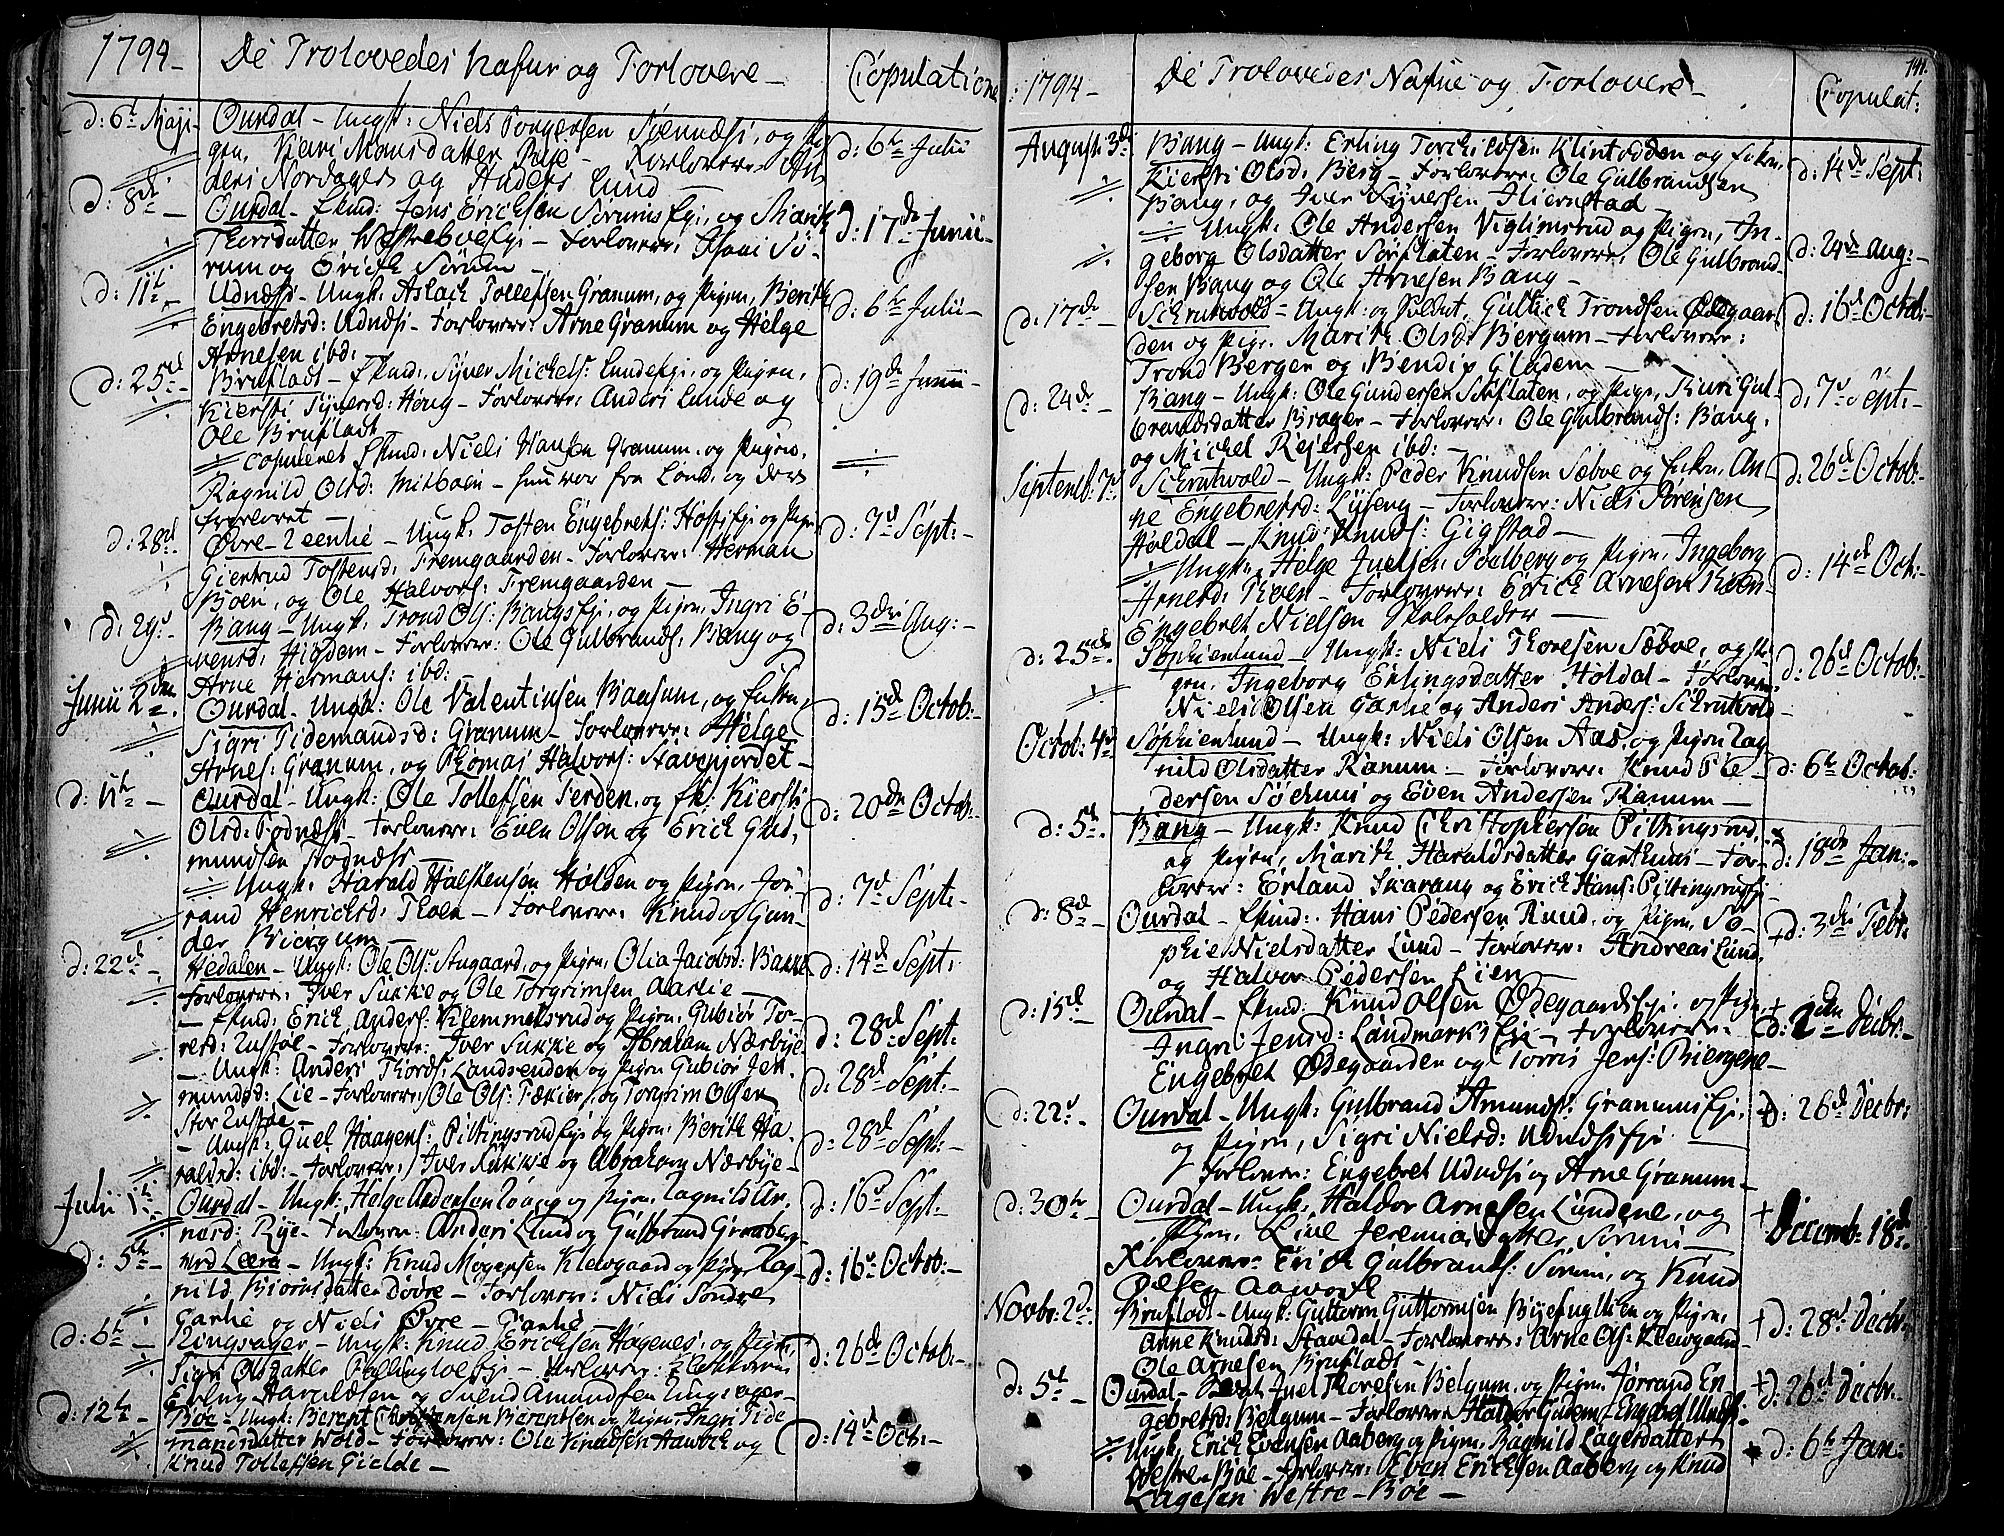 1794 -
De Trolovedes Nafne og Forlovere -
Copulatione
d: 6te Maji - Ourdal - Ungk: Niels Torgersen Sømnæss, og Pi-
gen, Kari Monsdatter Rye - Forlovere: An-
ders Nordager og Anders Lund -
d: 6te Julii
d: 8de - Ourdal - Ekmd: Jens Erichsen Sørums Eje, og Marith
Thorsdatter Westrebøe Eje - Forlovere: Sø-
rum og Erich Sørum -
d: 17de Junii -
d: 11te Udnæss - Ungk: Aslach Tollefsen Granum, og Pigen, Berith
Engebretsd: Udnæss - Forlovere: Arne Granum og Helge
Arnesen ibd:
d: 6te Julii -
d: 25de - Brufladt - Ekmd: Syver Michels: Lunde Eje, og Pigen,
Kiersti Syversd: Houg - Forlovere: Anders Lunde og
Ole Brufladt
d: 19de Junii -
copuleret Ekmd: Niels Hansen Granum, og Pigen,
Ragnild Olsd: Midboen - hun var fra Land, og der
trolovet -
d: 28de. Øvre-Leenhe - Ungk: Tosten Engebrets: Eje og Pigen
Giertrud Tostensd: Fremgaarden - Forlovere: Herman
Boen, og Ole Halvors: Fremgaarden -
d: 7de Sept: -
d: 29: - Bang - Ungk: Trond Ols: Bangs Eje, og Pigen, Ingri E-
vensd: Higdem - Forlovere: Ole Gulbrands: Bang og
Arne Hermans: ibd:
d: 3die Aug: -
Junii 2den. Ourdal - Ungk: Ole Valentinsen Baasum, og Enken,
Sigri Tidemandsd: Granum - Forlovere: Helge
Arnes: Granum, og Thomas Halvors: Stavenjordet -
d: 15de Octob: -
d: 11te - Ourdal - Ungk: Ole Tollefsen Ferden, og Ek: Kiersti
Olsd: Fodnæss - Forlovere: Even Olsen og Erich Gud-
mundsen Fodnæss -
d: 20de Octob:
Ungk: Harald Halstensen Holden og Pigen, Jør-
rand Henrichsd: Thoen - Forlovere: Knud og Gun-
der Biergum -
d: 7de Sept: -
d: 22de - Hedalen - Ungk: Ole Ols: Stugaard, og Pigen, Olia Jacobsd: Bakke
Forlovere: Iver Sukke og Ole Torgrimsen Aarlie -
d: 14de Sept:
- Ekmd: Erich Anders: Klemmetsrud og Pigen, Gubiør Tor-
rersd: Tussøe - Forlovere: Iver Sukke og Abraham Nærbye -
d: 28de Sept:
- Ungk: Anders Thords: Landsenden og Pigen Gubiør Jen-
mundsd: Lie - Forlovere: Ole Ols: og Torgrim Olsen
Stor Tussøe -
d: 28de Sept: -
- Ungk: Juel Haagens: Piltingsrud Eje og Pigen, Berith Ha-
raldsd: ibd: - Forlovere: Iver Sukke og Abraham Nærbye -
d: 28de Sept: -
Julii 1te. Ourdal - Ungk: Helge Andersen og Pigen, Ragnild An-
nersd: Rye - Forlovere: Anders Lund og Gulbrand Granberg -
d: 16de Sept: -
d: 5te - Ungk: Knud Mogensen Klewgaard og Pigen, Rag-
nild Biørnsdatter Døvre - Forlovere: Niels Søndre
Garlie og Niels Øvre - Garlie -
d: 16de Octob: -
d: 6te - Ringsager - Ungk: Knud Erichsen Høgenes, og Pigen,
Sigri Olsdatter - Forlovere:
Erling Haraldsen og Svend Amundsen Ringsager -
d: 26de Octob: -
d: 12te - Bøe - Ungk: Berent Christensen Berentsen og Pigen, Ingri Tide-
mandsdatter Wold - Forlovere: Ole Knudsen Aawoch og
Knud Tollefsen Gielde -
d: 14de Oct: -
1794 -
De Trolovedes Nafne og Forlovere -
Copulat:
141.
Augusti 3die Bang - Ungk: Erling Torchildsen Klintodden og Enken,
Kiersti Olsd: Berg - Forlovere: Ole Gulbrandsen
Bang, og Iver Syversen Hiernstad -
d: 14de Sept:
Ungk: Ole Andersen Viglimsrud og Pigen, In-
geborg Olsdatter Sørflaten - Forlovere: Ole Gulbrand-
sen Bang og Ole Arnesen Bang -
d: 24de Aug: -
d: 17de - Schrutwold - Ungk: og Soldat, Gullich Trondsen Ødegaar-
den og Pigen, Marith Olsd: Bergum - Forlovere:
Trond Bergen og Bendix Gladem -
d: 16de Octob: -
d: 24de - Bang - Ungk: Ole Gundersen Sørflaten, og Pigen, Thuri Gul-
brandsdatter Brager - Forlovere: Ole Gulbrands: Bang,
og Michel Rejersen ibd: -
d: 7de Sept: -
Septemb: 7de Schrutwold - Ungk: Peder Knudsen Sæboe og Enken, An-
ne Engebretsd: Lyseng - Forlovere: Niels Sørensen
Holdal - Knud Knuds: Gigstad -
d: 26de Octob: -
Ungk: Helge Juelsen Foelberg og Pigen, Ingeborg
Arnesd: Thoen - Forlovere: Erich Arnesen Thoen -
Engebret Nielsen Skoleholder -
d: 14de Oct: -
d: 25de. Sophienlund - Ungk: Niels Thoresen Sæboe, og Pi-
gen, Ingeborg Erlingsdatter Holdal - Forlovere:
Niels Olsen Garlie og Anders Anders: Schrutvold -
d: 26de Octob:
Octob: 4de Sophienlund - Ungk: Niels Olsen Aas, og Pigen Rag-
nild Olsdatter Ranum - Forlovere: Knud Pe-
dersen Søchnes og Even Andersen Ranum -
d: 6te Octob:
d: 5te. Bang - Ungk: Knud Christophersen Piltingsrud,
og Pigen, Marith Haraldsdatter Garthus - For-
lovere: Erland Skarang og Erich Hans: Piltingsrud
d: 18de Jan: -
d: 8de - Ourdal - Ekmd: Hans Pedersen Ruud, og Pigen, So-
phie Nielsdatter Lund - Forlovere: Andreas Lund,
og Halvor Pedersen Lien -
+ d: 3die Febr:
d: 15de - Ourdal - Ekmd: Knud Olsen Ødegaards Eje, og Pigen
Ingri Jensd: Landmarks Eje - Forlovere:
Engebret Ødegaarden og Torris Jens: Biergene -
+ d: 2den Decbr: -
d: 22de - Ourdal - Ungk: Gulbrand Amunds: Granums Eje,
og Pigen, Sigri Nielsd: Udnæss Eje
Forlovere: Engebret Udnæss og Arne Granum -
d: 26de Decbr:
d: 30te - Ourdal - Ungk: Haldor Arnesen Lundene, og
Pigen, Live Jeremiasdatter Sørum -
Forlovere: Erich Gulbrands: Sørum, og Knud
Olsen Aawold
+ Decemb: 18de
Novbr: 2den Brufladt - Ungk: Guttorm Guttormsen Byefuglien og Pigen,
Anne Knudsd: Stavdal - Forlovere: Arne Ols: Klewgaard -
Ole Arnesen Brufladt -
+ d: 28de Decbr:
d: 5te - Ourdal - Soldat Juel Thoresen Belgum, og Pigen, Jørrand En-
gebretsd: Belgum - Forlovere: Haldor Gudem - Engebret Udnæss
+ d: 26de Decbr: -
Ungk, Erich Evensen Aaberg og Pigen, Ragnild Lagesdatter
Westre-Bøe - Forlovere: Even Erichsen Aaberg og Knud
Lagesen Westre-Bøe -
d: 6te Jan: